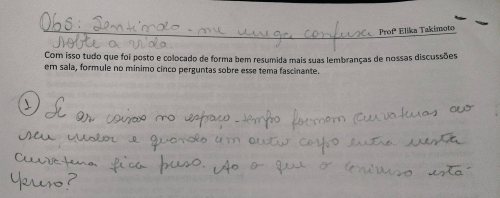 Obs: Sentindo-me meiga confusa Profª Elika Takimoto
sobre a vida
Com isso tudo que foi posto e colocado de forma bem resumida mais suas lembranças de nossas discussões
em sala, formule no mínimo cinco perguntas sobre esse tema fascinante.
1 Se as coisas no espaço-tempo formam curvaturas ao
seu redor e quando um outro corpo entra nesta
curvatura fica preso. Ao o que o universo está
preso?